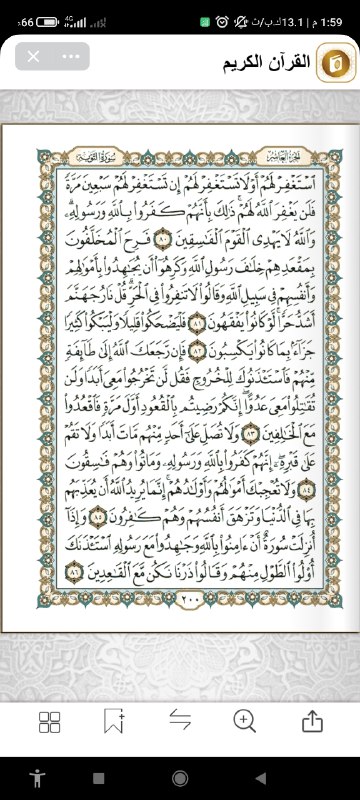 1:59 م | 13.1ك.ب/ث
66%
القرآن الكريم
الجزء العاشر
سورة التوبة
ٱسۡتَغۡفِرۡ لَهُمۡ أَوۡ لَا تَسۡتَغۡفِرۡ لَهُمۡ إِن تَسۡتَغۡفِرۡ لَهُمۡ سَبۡعِينَ مَرَّةٗ
فَلَن يَغۡفِرَ ٱللَّهُ لَهُمۡۚ ذَٰلِكَ بِأَنَّهُمۡ كَفَرُواْ بِٱللَّهِ وَرَسُولِهِۦۗ
وَٱللَّهُ لَا يَهۡدِي ٱلۡقَوۡمَ ٱلۡفَٰسِقِينَ ٨٠ فَرِحَ ٱلۡمُخَلَّفُونَ
بِمَقۡعَدِهِمۡ خِلَٰفَ رَسُولِ ٱللَّهِ وَكَرِهُوٓاْ أَن يُجَٰهِدُواْ بِأَمۡوَٰلِهِمۡ
وَأَنفُسِهِمۡ فِي سَبِيلِ ٱللَّهِ وَقَالُواْ لَا تَنفِرُواْ فِي ٱلۡحَرِّۗ قُلۡ نَارُ جَهَنَّمَ
أَشَدُّ حَرّٗاۚ لَّوۡ كَانُواْ يَفۡقَهُونَ ٨١ فَلۡيَضۡحَكُواْ قَلِيلٗا وَلۡيَبۡكُواْ كَثِيرٗا
جَزَآءَۢ بِمَا كَانُواْ يَكۡسِبُونَ ٨٢ فَإِن رَّجَعَكَ ٱللَّهُ إِلَىٰ طَآئِفَةٖ
مِّنۡهُمۡ فَٱسۡتَـٔۡذَنُوكَ لِلۡخُرُوجِ فَقُل لَّن تَخۡرُجُواْ مَعِيَ أَبَدٗا وَلَن
تُقَٰتِلُواْ مَعِيَ عَدُوًّاۖ إِنَّكُمۡ رَضِيتُم بِٱلۡقُعُودِ أَوَّلَ مَرَّةٖ فَٱقۡعُدُواْ
مَعَ ٱلۡخَٰلِفِينَ ٨٣ وَلَا تُصَلِّ عَلَىٰٓ أَحَدٖ مِّنۡهُم مَّاتَ أَبَدٗا وَلَا تَقُمۡ
عَلَىٰ قَبۡرِهِۦٓۖ إِنَّهُمۡ كَفَرُواْ بِٱللَّهِ وَرَسُولِهِۦ وَمَاتُواْ وَهُمۡ فَٰسِقُونَ
٨٤ وَلَا تُعۡجِبۡكَ أَمۡوَٰلُهُمۡ وَأَوۡلَٰدُهُمۡۚ إِنَّمَا يُرِيدُ ٱللَّهُ أَن يُعَذِّبَهُم
بِهَا فِي ٱلدُّنۡيَا وَتَزۡهَقَ أَنفُسُهُمۡ وَهُمۡ كَٰفِرُونَ ٨٥ وَإِذَآ
أُنزِلَتۡ سُورَةٌ أَنۡ ءَامِنُواْ بِٱللَّهِ وَجَٰهِدُواْ مَعَ رَسُولِهِ ٱسۡتَـٔۡذَنَكَ
أُوْلُواْ ٱلطَّوۡلِ مِنۡهُمۡ وَقَالُواْ ذَرۡنَا نَكُن مَّعَ ٱلۡقَٰعِدِينَ ٨٦
٢٠٠